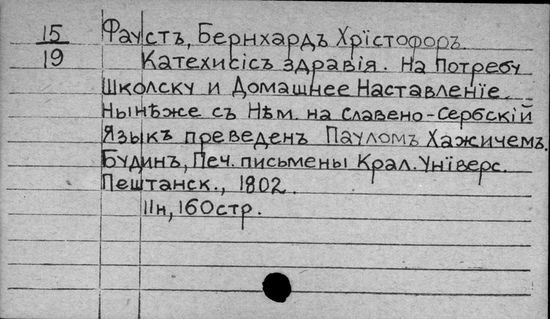 15 Фаустъ, Бернхардъ Хрїстофоръ.
19 Катехисісъ здравія. На Потребу
Школску и Домашнее Наставленїе.
Нынѣже съ Нѣм. на Славено-Сербскїй
Языкъ преведенъ Пауломъ Хажичемъ.
Будинъ, Печ. письмены Крал. Унїверс.
Пештанск., 1802.
IIн, 160стр.